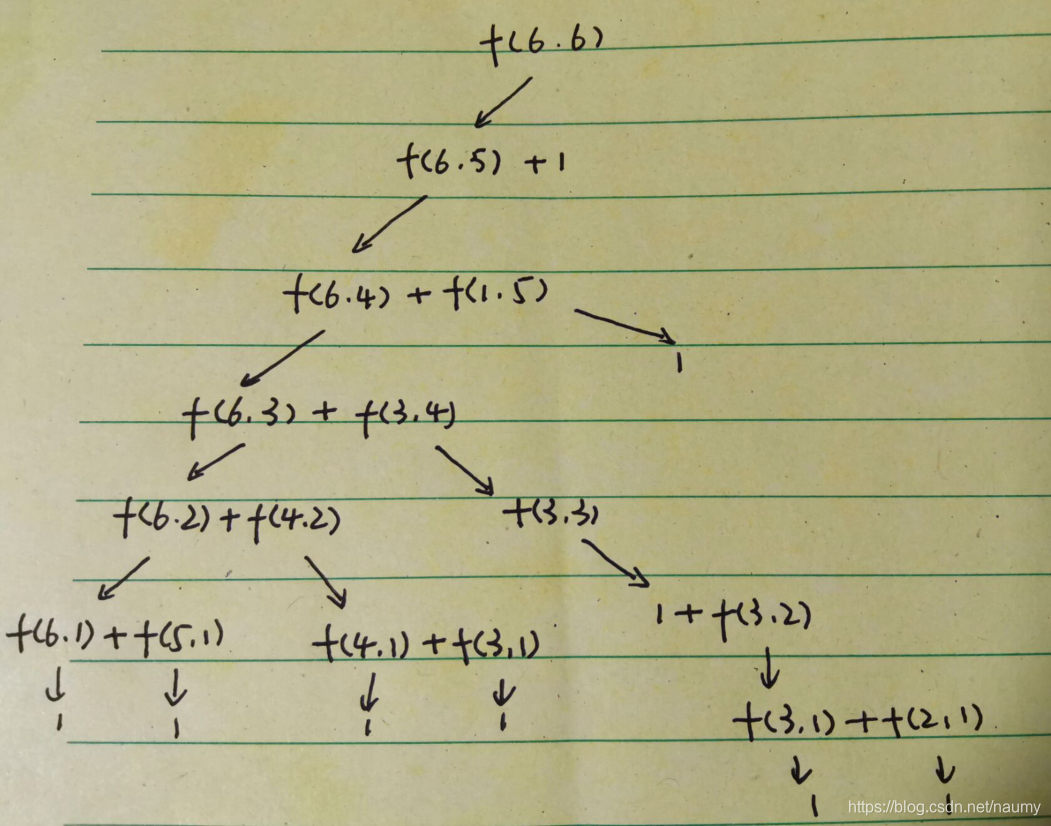 f(6.6)
f(6.5) + 1
f(6.4) + f(1.5)
1
f(6.3) + f(3.4)
f(6.2) + f(4.2) f(3.3)
f(6.1) + f(5,1) f(4.1) + f(3,1) 1 + f(3.2)
1 1 1 1 f(3,1) + f(2,1)
1 1
https://blog.csdn.net/naumy